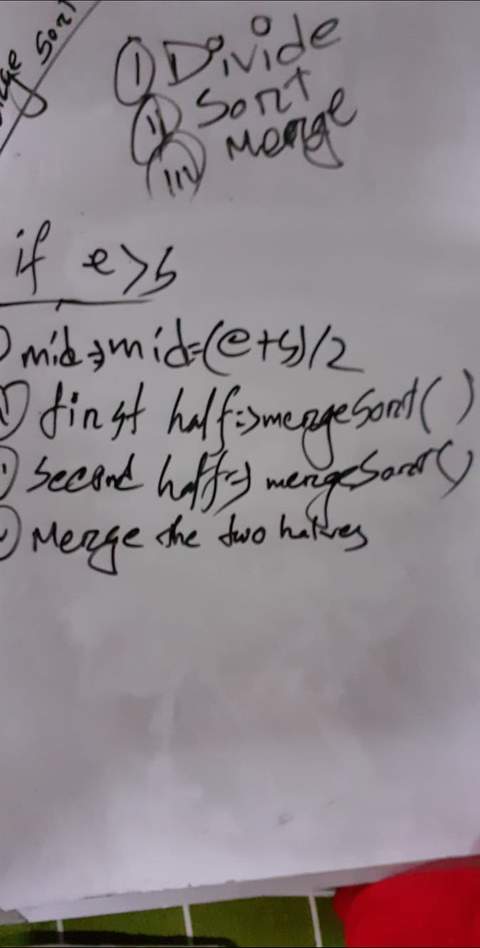 Sort
(i) Divide
(ii) Sort
(iii) Merge
if e>s
mid => mid=(e+s)/2
first half => mergeSort()
second half => mergeSort()
Merge the two halves